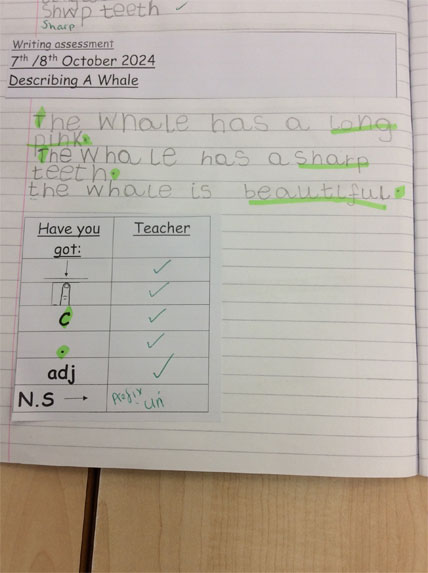 Shwp teeth ✓
Sharp
Writing assessment
7th /8th October 2024
Describing A Whale
The whale has a long
pink.
The whale has a sharp
teeth.
the whale is beautiful.
Have you got: Teacher
✓
✓
C ✓
. ✓
adj ✓
N.S → prefix - un